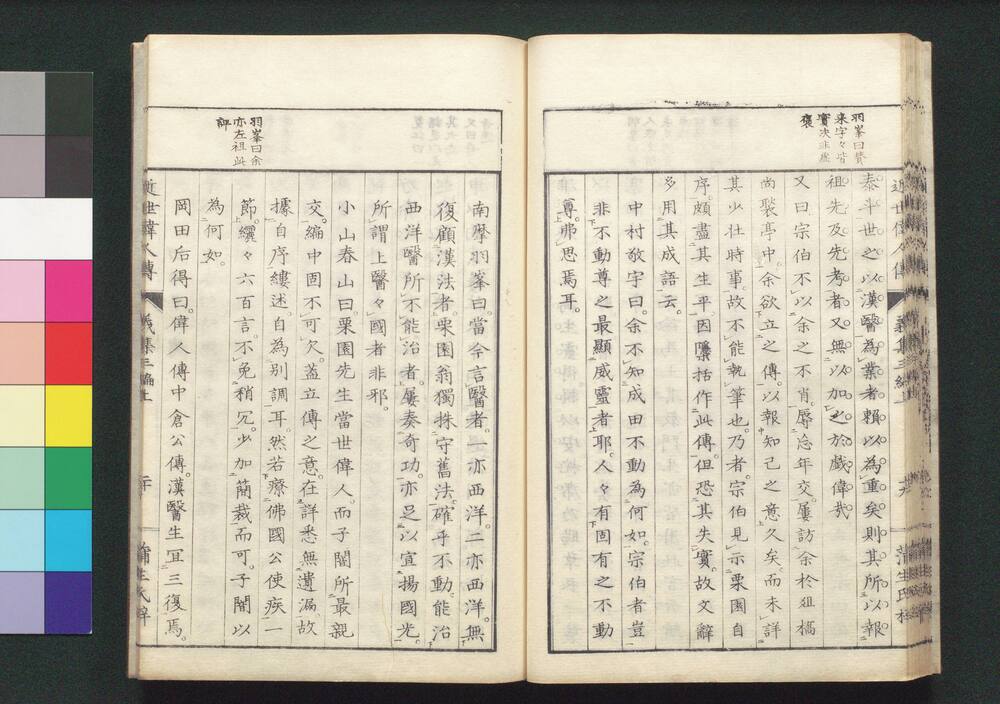 羽峯曰贊
来字々皆
實決非虚
褒
泰平世之以漢醫為業者賴以為重矣則其所以報
祖先及先考者又無以加之於戲偉哉
又曰宗伯不以余之不肖辱忘年交屢訪余於俎橋
尚褧亭中余欲立之傳以報知己之意久矣而未詳
其少壮時事故不能執筆也乃者宗伯見示栗園自
序頗盡其生平因檃括作此傳但恐其失實故文辭
多用其成語云
中村敬宇曰余不知成田不動為何如宗伯者豈
非不動尊之最顯威靈者耶人々有固有之不動
尊弗思焉耳
近世偉人傳 義集三編上 蒲生氏梓
羽峯曰余
亦左袒此
評
南摩羽峯曰當今言醫者一亦西洋二亦西洋無
復顧漢法者栗園翁獨株守舊法確乎不動能治
西洋醫所不能治者屢奏奇功亦足以宣揚國光
所謂上醫々國者非邪
小山春山曰栗園先生當世偉人而子闇所最親
交編中固不可欠蓋立傳之意在詳悉無遺漏故
據自序縷述自為別調耳然若療佛國公使疾一
節纚々六百言不免稍冗少加簡裁而可子闇以
為何如
岡田后得曰偉人傳中倉公傳漢醫生宜三復焉
近世偉人傳 義集三編上 蒲生氏梓